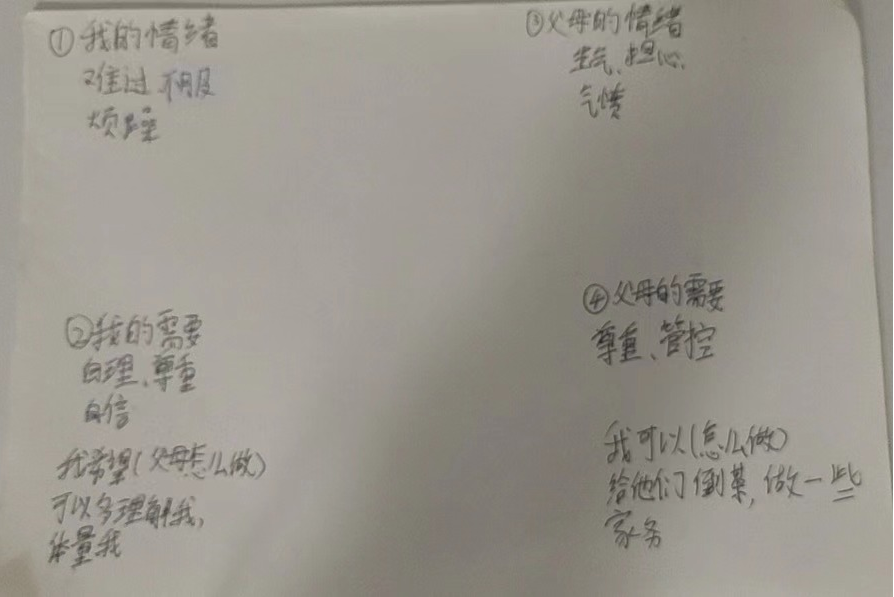 ①我的情绪
难过 不服
烦躁
②我的需要
自理、尊重
自信
我希望(父母怎么做)
可以多理解我,
体量我
③父母的情绪
生气、担心、
气愤
④父母的需要
尊重、管控
我可以(怎么做)
给他们倒茶,做一些
家务